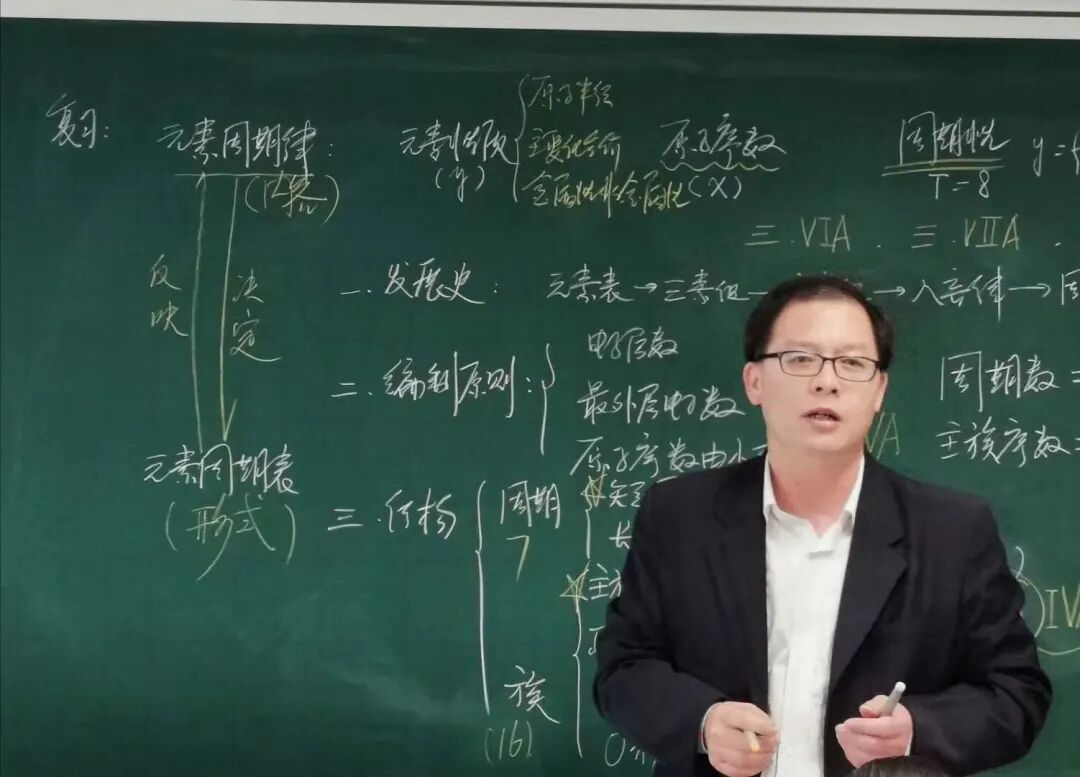 复习：
元素周期律：
(内容)
元素性质
(y)
原子半径
主要化合价
金属性非金属性
原子序数
(X)
周期性
T=8
y=f
三.VIA. 三.VIIA.
反映
决定
元素周期表
(形式)
一.发展史： 元素表→三素组— →八音律→周
二.编制原则：
电子层数
最外层电子数
原子序数由小
VA
周期数=
主族序数=
三.结构
周期
7
短
长
主族
族
(16)
0
IVA